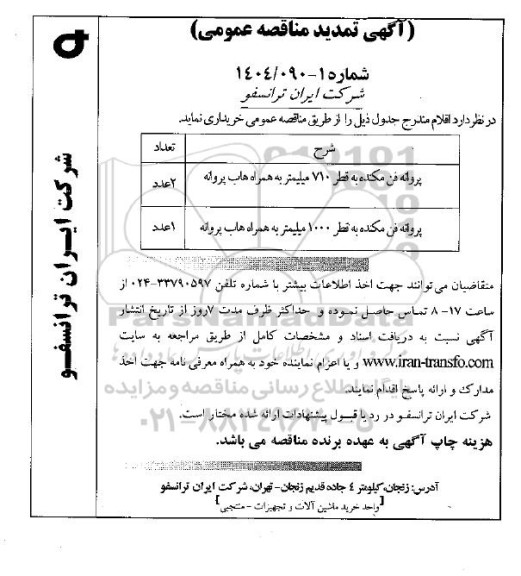 (آگهی تمدید مناقصه عمومی)
شماره ۱-۱۴۰۴/۰۹۰
شرکت ایران ترانسفو
در نظر دارد اقلام مندرج جدول ذیل را از طریق مناقصه عمومی خریداری نماید.
شرح
تعداد
پروانه فن مکنده به قطر ۷۱۰ میلیمتر به همراه هاب پروانه
۲عدد
پروانه فن مکنده به قطر ۱۰۰۰ میلیمتر به همراه هاب پروانه
۱عدد
متقاضیان می توانند جهت اخذ اطلاعات بیشتر با شماره تلفن ۳۳۷۹۰۵۹۷-۰۲۴ از
ساعت ۱۷- ۸ تماس حاصل نموده و حداکثر ظرف مدت ۷روز از تاریخ انتشار
آگهی نسبت به دریافت اسناد و مشخصات کامل از طریق مراجعه به سایت
www.iran-transfo.com و یا اعزام نماینده خود به همراه معرفی نامه جهت اخذ
مدارک و ارائه پاسخ اقدام نمایند.
شرکت ایران ترانسفو در رد یا قبول پیشنهادات ارائه شده مختار است.
هزینه چاپ آگهی به عهده برنده مناقصه می باشد.
آدرس: زنجان، کیلومتر ٤ جاده قدیم زنجان- تهران، شرکت ایران ترانسفو
[واحد خرید ماشین آلات و تجهیزات - منتجبی]
شرکت ایران ترانسفو
ParsNamadData
پایگاه اطلاع رسانی مناقصه و مزایده
۰۲۱-۸۸۳۴۹۶۷۰-۵